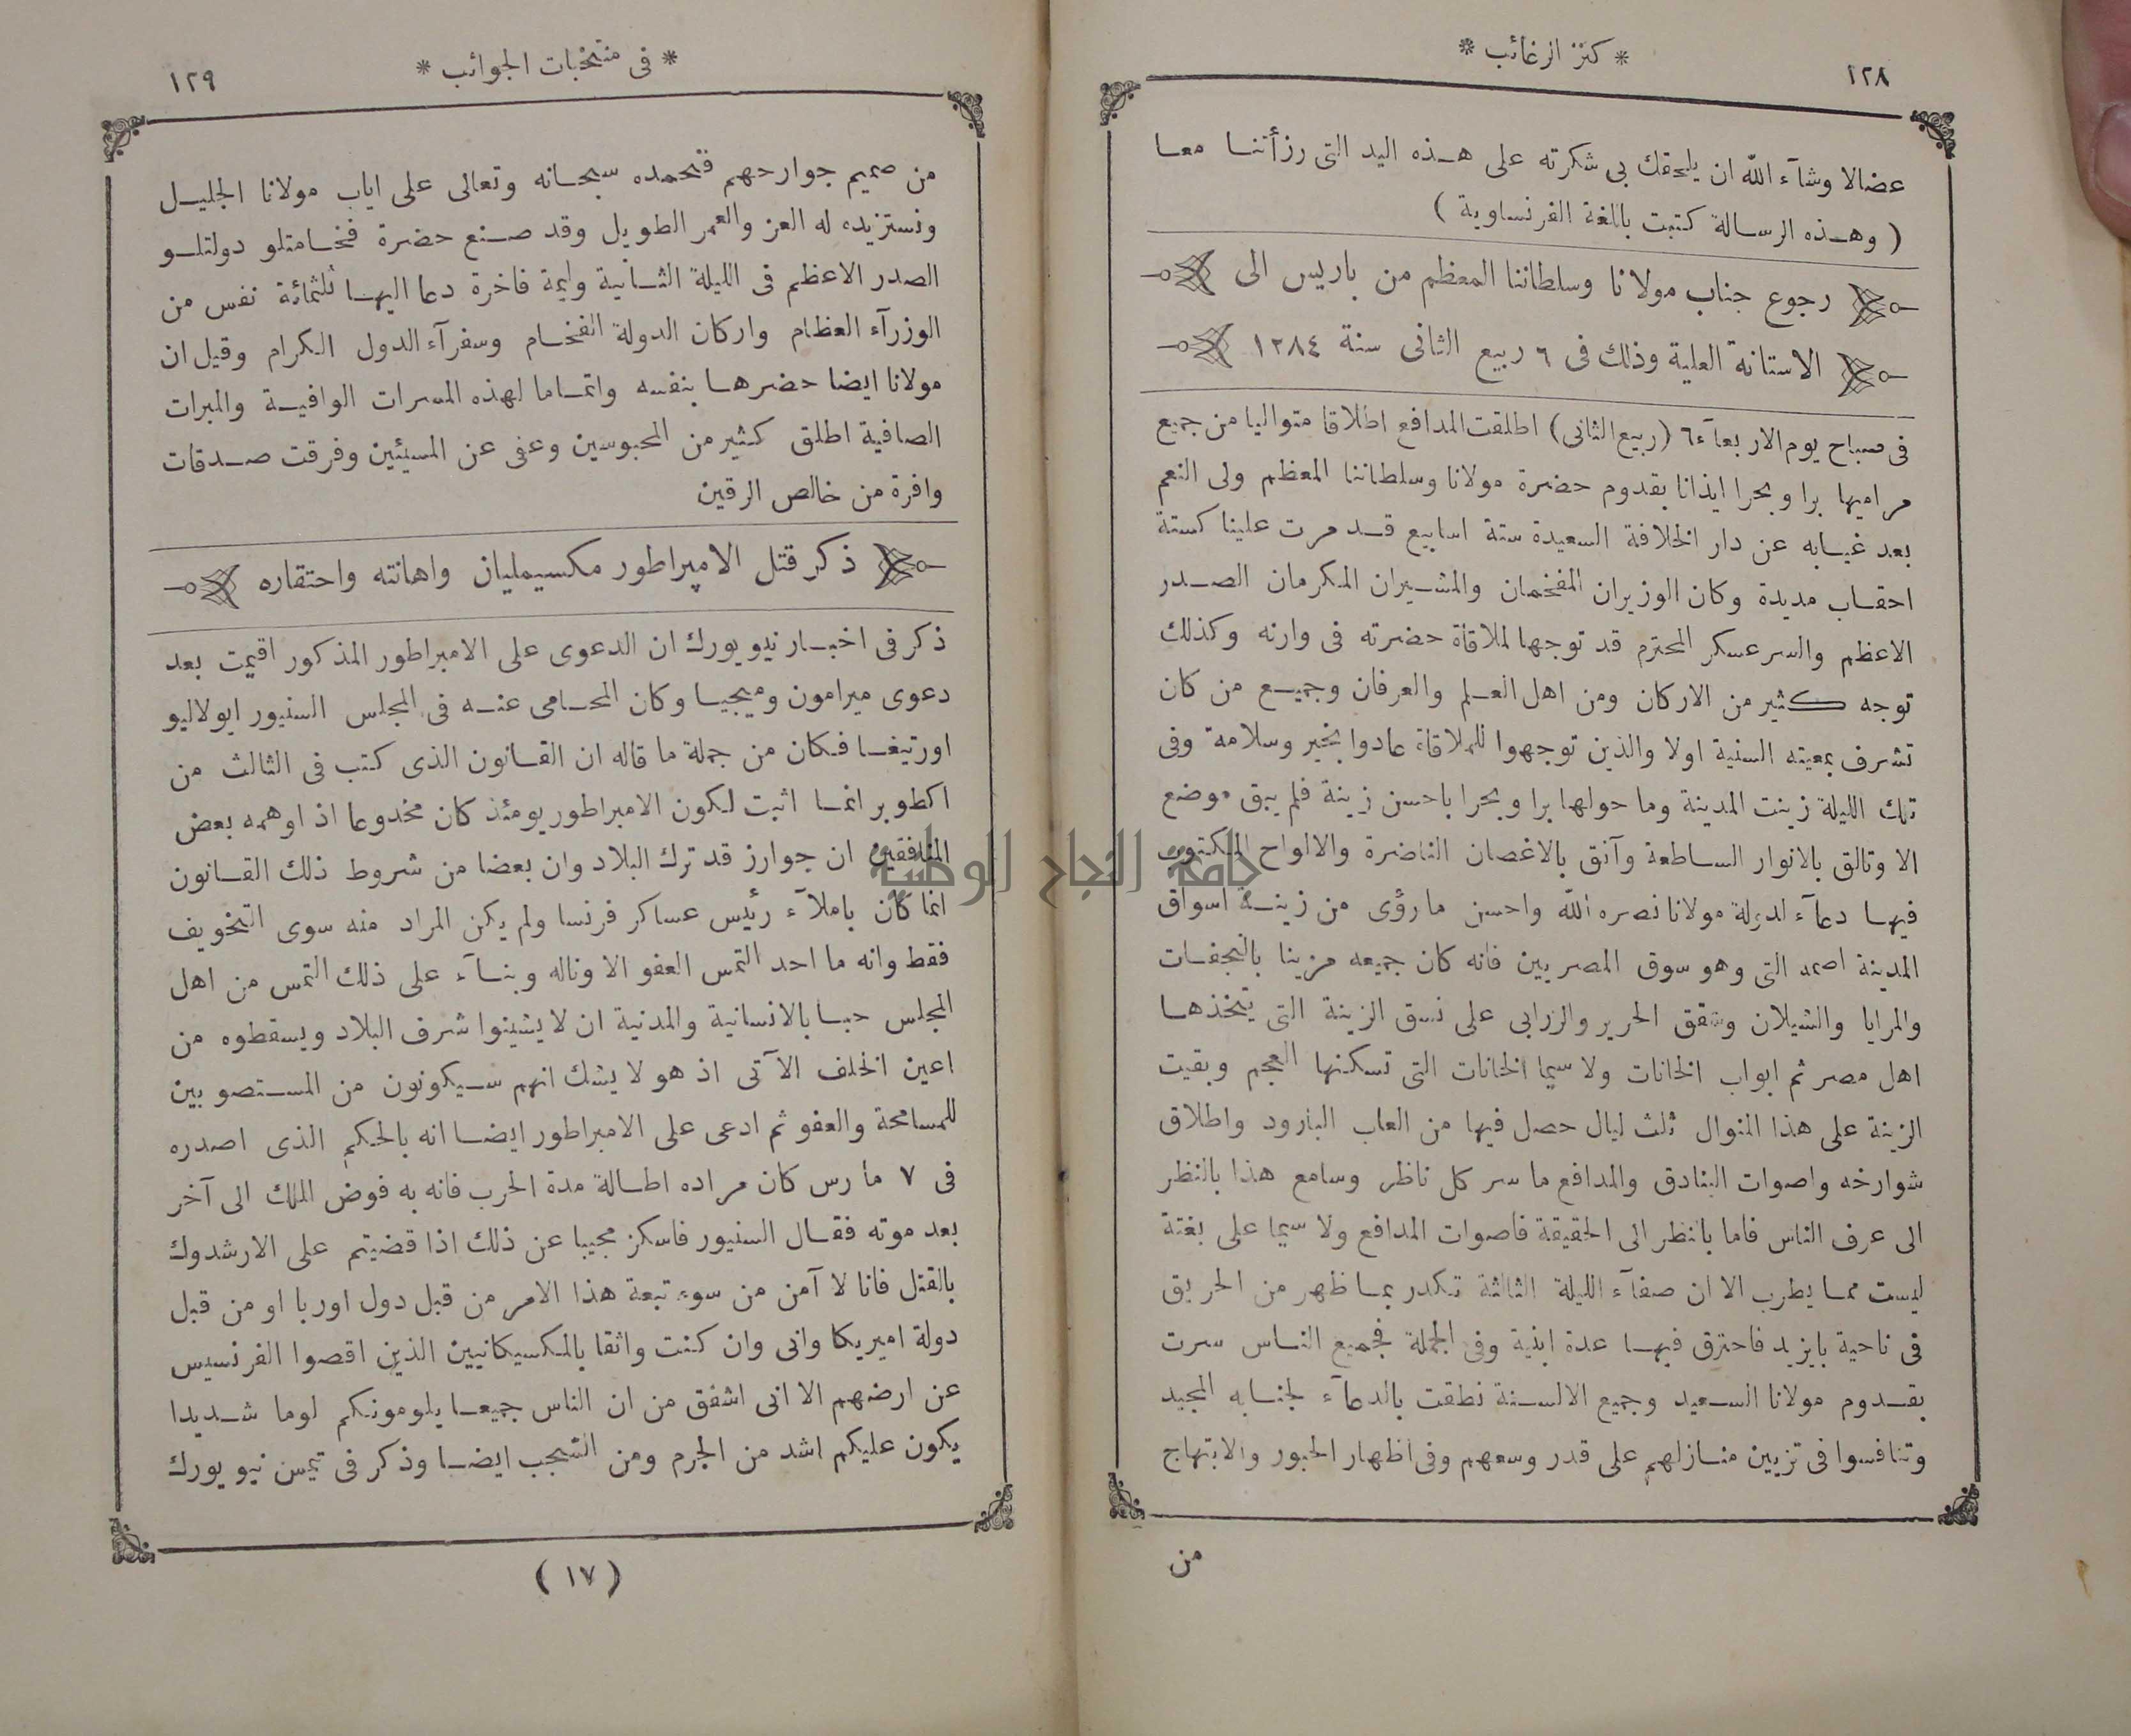 ١٢٨
* كنز الرغائب *
عضالا وشآء الله ان يلحقك بى شكرته على هذه اليد التى رزأتنا معا
( وهذه الرسالة كتبت باللغة الفرنساوية )
رجوع جناب مولانا وسلطاننا المعظم من باريس الى
الاستانة العلية وذلك فى ٦ ربيع الثانى سنة ١٢٨٤
فى صباح يوم الاربعآء ٦ (ربيع الثانى) اطلقت المدافع اطلاقا متواليا من جميع
مراميها برا وبحرا ايذانا بقدوم حضرة مولانا وسلطاننا المعظم ولى النعم
بعد غيابه عن دار الخلافة السعيدة ستة اسابيع قد مرت علينا كستة
احقاب مديدة وكان الوزيران المفخمان والمشيران المكرمان الصدر
الاعظم والسرعسكر المحترم قد توجها لملاقاة حضرته فى وارنه وكذلك
توجه كثير من الاركان ومن اهل العلم والعرفان وجميع من كان
تشرف بمعيته السنية اولا والذين توجهوا للملاقاة عادوا بخير وسلامة وفى
تلك الليلة زينت المدينة وما حولها برا وبحرا باحسن زينة فلم يبق موضع
الا وتالق بالانوار الساطعة وآنق بالاغصان الناضرة والالواح المكتوب
فيها دعآء لدولة مولانا نصره الله واحسن ما رؤى من زينة اسواق
المدينة اصمه التى وهو سوق المصريين فانه كان جميعه مزينا بالنجفات
والمرايا والشيلان وشقق الحرير والزرابى على نسق الزينة التى يتخذها
اهل مصر ثم ابواب الخانات ولا سيما الخانات التى تسكنها العجم وبقيت
الزينة على هذا المنوال ثلث ليال حصل فيها من العاب البارود واطلاق
شوارخه واصوات البنادق والمدافع ما سر كل ناظر وسامع هذا بالنظر
الى عرف الناس فاما بالنظر الى الحقيقة فاصوات المدافع ولا سيما على بغتة
ليست مما يطرب الا ان صفآء الليلة الثالثة تكدر بما ظهر من الحريق
فى ناحية بايزيد فاحترق فيها عدة ابنية وفى الجملة فجميع الناس سرت
بقدوم مولانا السعيد وجميع الالسنة نطقت بالدعآء لجنابه المجيد
وتنافسوا فى تزيين منازلهم على قدر وسعهم وفى اظهار الحبور والابتهاج
من
١٢٩
* فى منتخبات الجوائب *
من صميم جوارحهم فنحمده سبحانه وتعالى على اياب مولانا الجليل
ونستزيده له العز والعمر الطويل وقد صنع حضرة فخامتلو دولتلو
الصدر الاعظم فى الليلة الثانية وليمة فاخرة دعا اليها ثلثمائة نفس من
الوزرآء العظام واركان الدولة الفخام وسفرآء الدول الكرام وقيل ان
مولانا ايضا حضرها بنفسه واتماما لهذه المسرات الوافية والمبرات
الصافية اطلق كثير من المحبوسين وعفى عن المسيئين وفرقت صدقات
وافرة من خالص الرقين
ذكر قتل الامپراطور مكسيمليان واهانته واحتقاره
ذكر فى اخبار نيو يورك ان الدعوى على الامبراطور المذكور اقيمت بعد
دعوى ميرامون وميجيا وكان المحامى عنه فى المجلس السنيور ايولاليو
اورتيغا فكان من جملة ما قاله ان القانون الذى كتب فى الثالث من
اكطوبر انما اثبت لكون الامبراطور يومئذ كان مخدوعا اذ اوهمه بعض
المنافقين ان جوارز قد ترك البلاد وان بعضا من شروط ذلك القانون
انما كان باملآء رئيس عساكر فرنسا ولم يكن المراد منه سوى التخويف
فقط وانه ما احد التمس العفو الا وناله وبنآء على ذلك التمس من اهل
المجلس حبا بالانسانية والمدنية ان لا يشينوا شرف البلاد ويسقطوه من
اعين الخلف الآتى اذ هو لا يشك انهم سيكونون من المستصوبين
للمسامحة والعفو ثم ادعى على الامبراطور ايضا انه بالحكم الذى اصدره
فى ٧ مارس كان مراده اطالة مدة الحرب فانه به فوض الملك الى آخر
بعد موته فقال السنيور فاسكز مجيبا عن ذلك اذا قضيتم على الارشدوك
بالقتل فانا لا آمن من سوء تبعة هذا الامر من قبل دول اوربا او من قبل
دولة اميريكا وانى وان كنت واثقا بالمكسيكانيين الذين اقصوا الفرنسيس
عن ارضهم الا انى اشفق من ان الناس جميعا يلومونكم لوما شديدا
يكون عليكم اشد من الجرم ومن الشجب ايضا وذكر فى تيمس نيو يورك
( ١٧ )
جامعة النجاح الوطنية